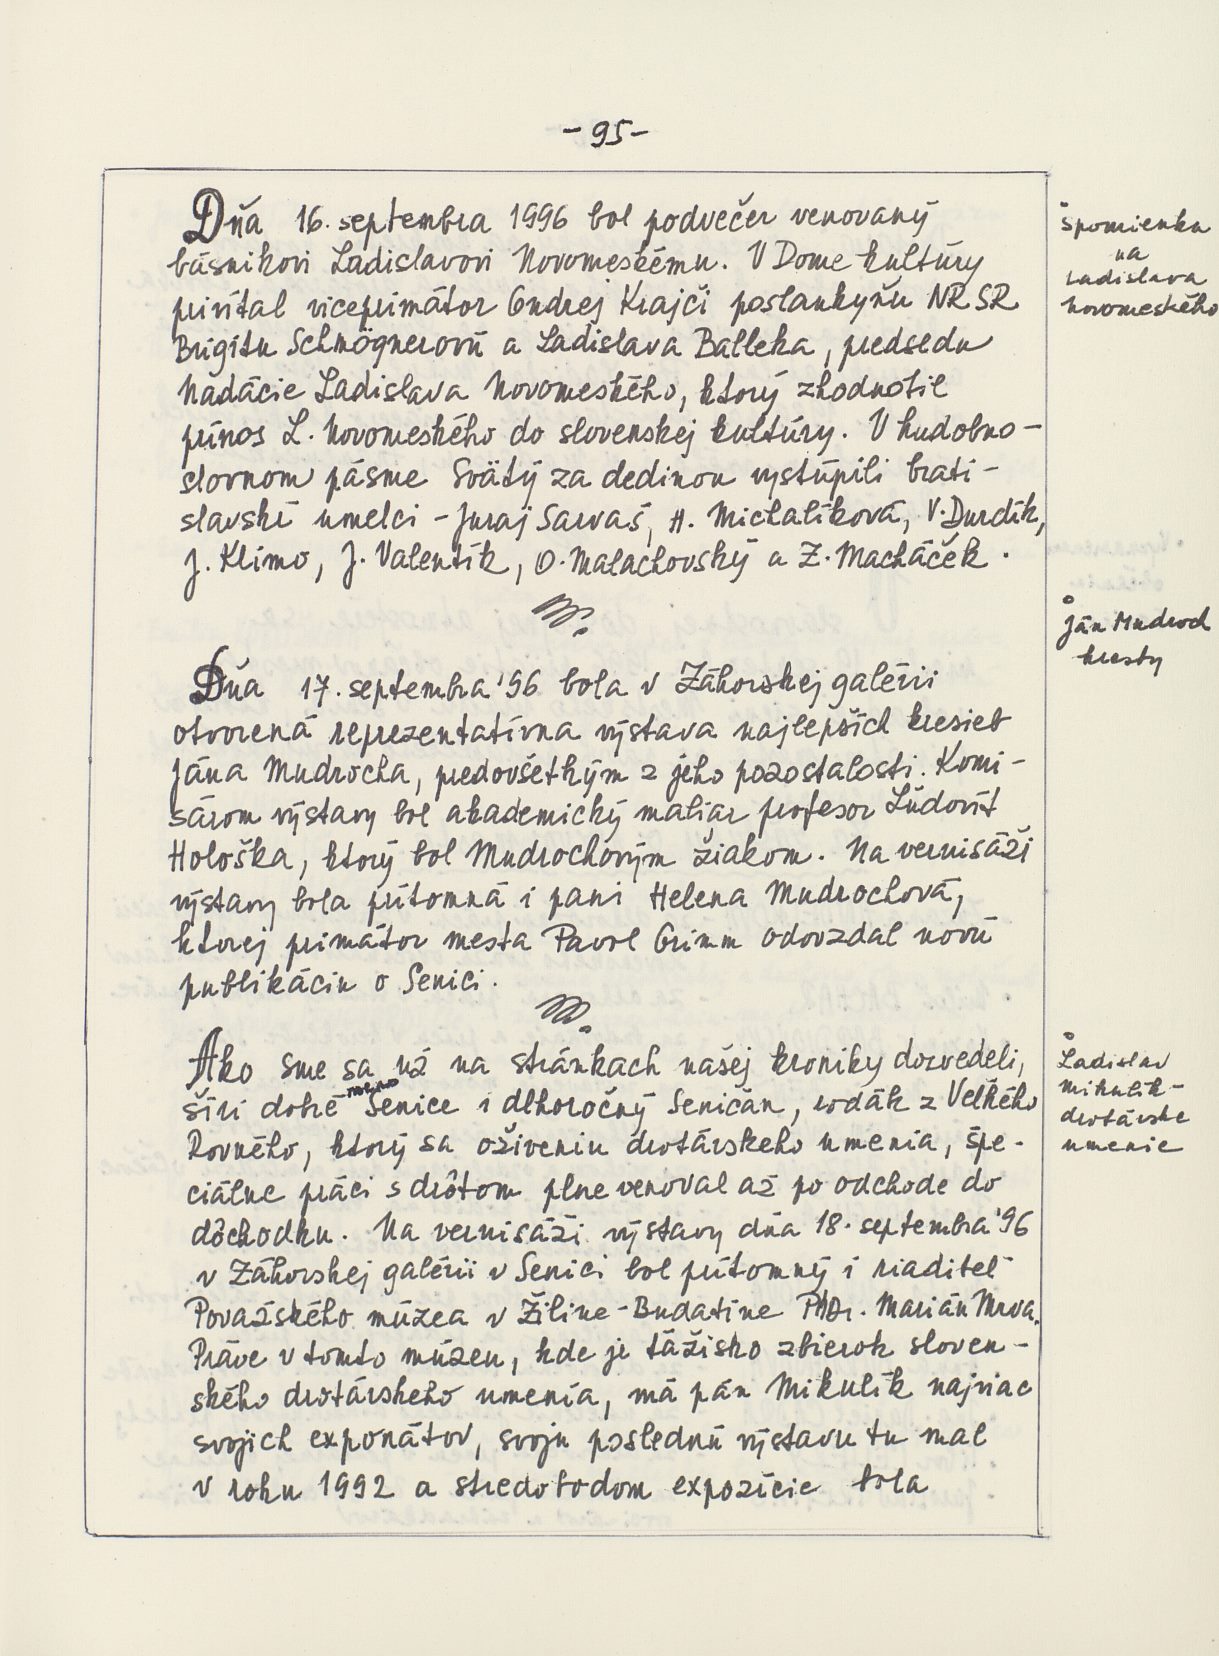 - 95 -
Dňa 16. septembra 1996 bol podvečer venovaný
básnikovi Ladislavovi Novomeskému. V Dome kultúry
privítal viceprimátor Ondrej Krajči poslankyňu NR SR
Brigitu Schmögnerovú a Ladislava Balleka, predsedu
Nadácie Ladislava Novomeského, ktorý zhodnotil
prínos L. Novomeského do slovenskej kultúry. V hudobno-
slovnom pásme Svätý za dedinou vystúpili brati-
slavskí umelci - Juraj Sarvaš, H. Michalíková, V. Durdík,
J. Klimo, J. Valentík, O. Malachovský a Z. Macháček.
Spomienka
na
Ladislava
Novomeského
Dňa 17. septembra '96 bola v Záhorskej galérii
otvorená reprezentatívna výstava najlepších kresieb
Jána Mudrocha, predovšetkým z jeho pozostalosti. Komi-
sárom výstavy bol akademický maliar profesor Ľudovít
Hološka, ktorý bol Mudrochovým žiakom. Na vernisáži
výstavy bola prítomná i pani Helena Mudrochová,
ktorej primátor mesta Pavol Grimm odovzdal novú
publikáciu o Senici.
Ján Mudroch
kresby
Ako sme sa už na stránkach našej kroniky dozvedeli,
šíri dobré meno Senice i dlhoročný Seničan, rodák z Veľkého
Rovného, ktorý sa oživeniu drotárskeho umenia, špe-
ciálne práci s drôtom plne venoval až po odchode do
dôchodku. Na vernisáži výstavy dňa 18. septembra '96
v Záhorskej galérii v Senici bol prítomný i riaditeľ
Považského múzea v Žiline - Budatíne PhDr. Marián Mrva.
Práve v tomto múzeu, kde je ťažisko zbierok sloven-
ského drotárskeho umenia, má pán Mikulík najviac
svojich exponátov, svoju poslednú výstavu tu mal
v roku 1992 a stredobodom expozície bola
Ladislav
Mikulík -
drotárske
umenie